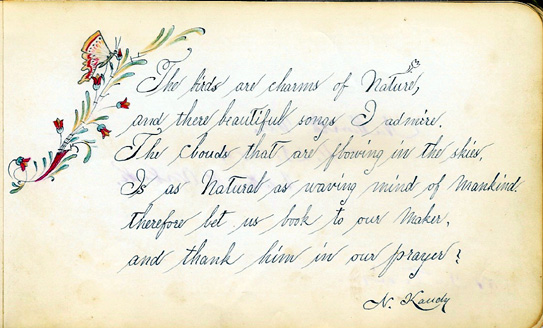 The birds are charms of Nature,
and there beautiful songs I admire.
The clouds that are flowing in the skies,
Is as Natural as waving mind of Mankind
therefore let us look to our Maker,
and thank him in our prayer;
N. Kaudy